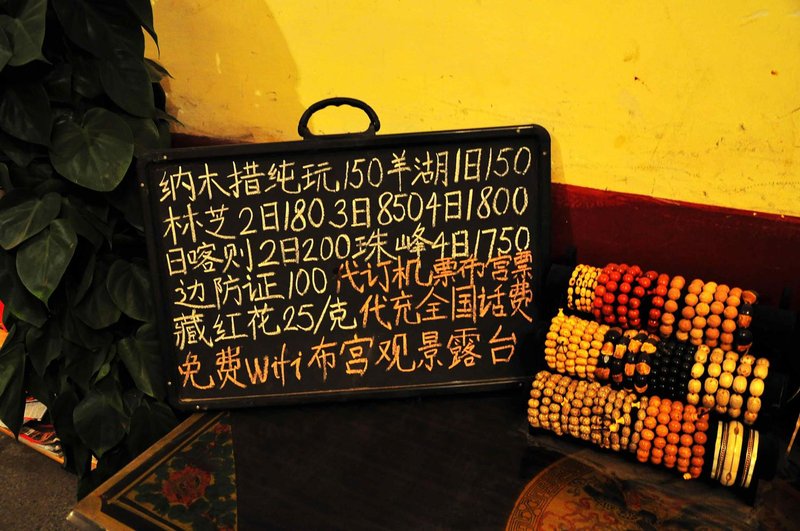 纳木措纯玩150羊湖1日150
林芝2日180 3日850 4日1800
日喀则2日200珠峰4日1750
边防证100 代订机票布宫票
藏红花25/克代充全国话费
免费Wifi布宫观景露台